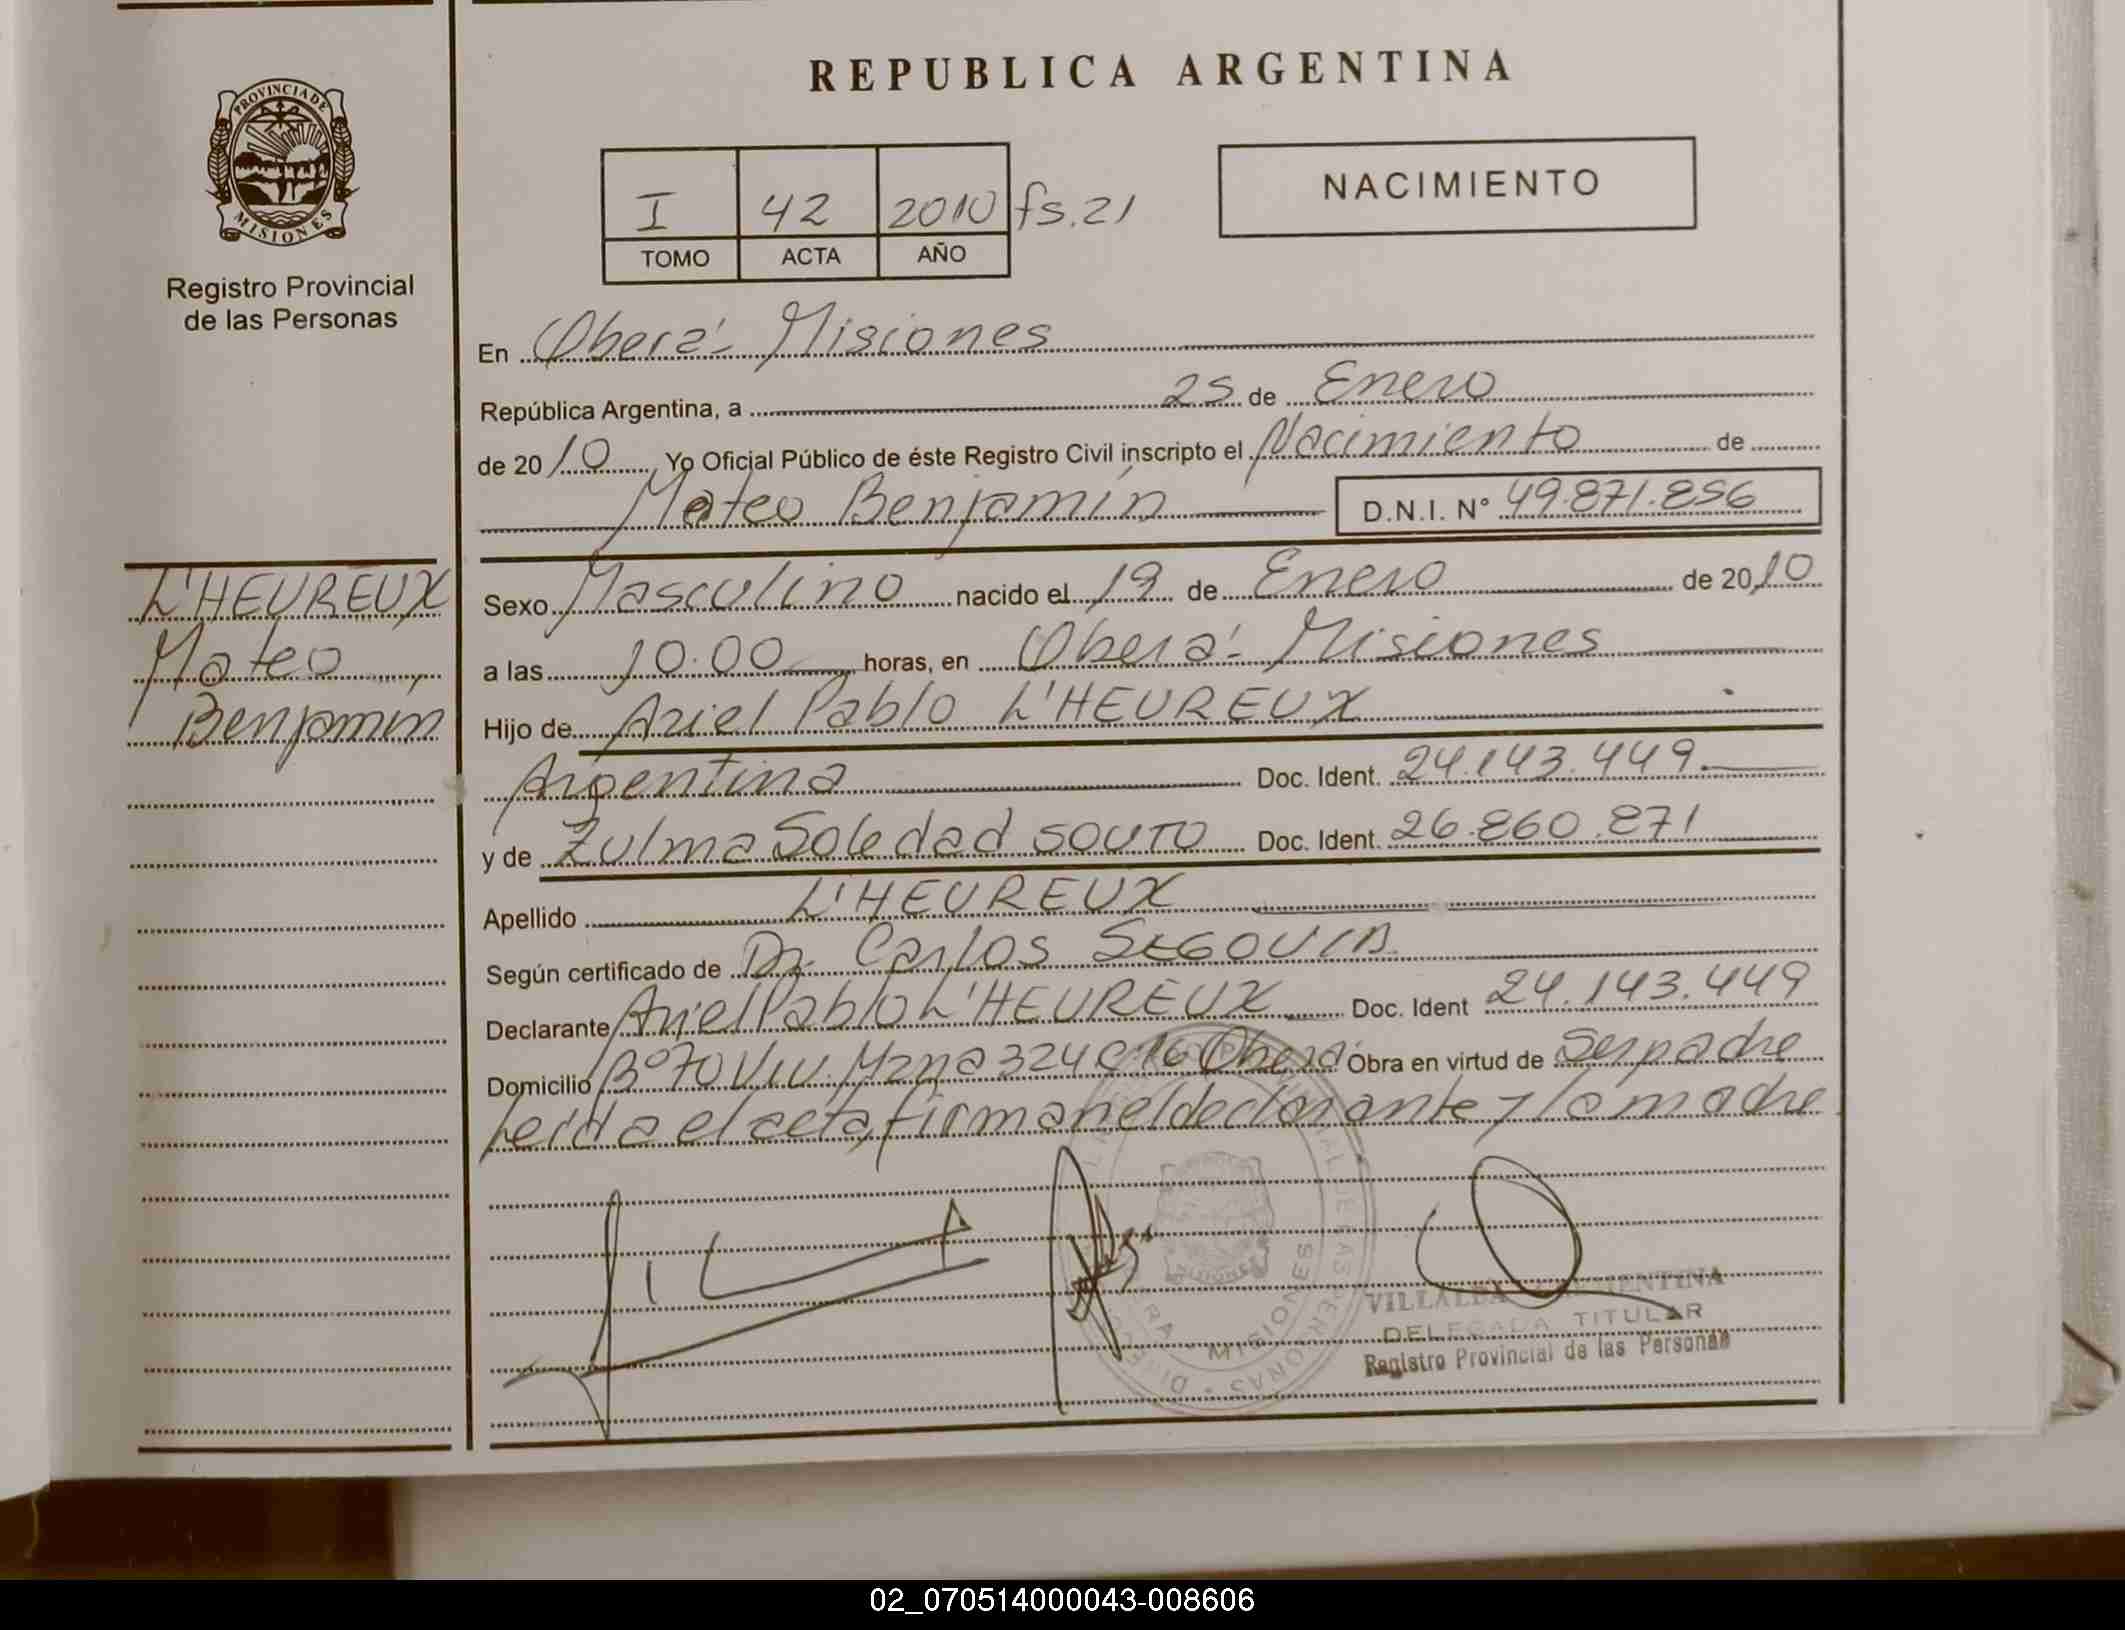 REPUBLICA ARGENTINA
PROVINCIA DE
MISIONES
Registro Provincial
de las Personas
I 42 2010 fs. 21
TOMO ACTA AÑO
NACIMIENTO
En Oberá - Misiones
República Argentina, a 25 de Enero
de 2010 Yo Oficial Público de éste Registro Civil inscripto el Nacimiento de
Mateo Benjamín D.N.I. N° 49.871.856
L'HEUREUX
Mateo
Benjamín
Sexo Masculino nacido el 19 de Enero de 2010
a las 10.00 horas, en Oberá - Misiones
Hijo de Ariel Pablo L'HEUREUX
Argentina Doc. Ident. 24.143.449
y de Zulma Soledad SOUTO Doc. Ident. 26.860.871
Apellido L'HEUREUX
Según certificado de Dr. Carlos SEGOVIA
Declarante Ariel Pablo L'HEUREUX Doc. Ident 24.143.449
Domicilio B° 70 Viv. Mzna 324 C 16 Oberá Obra en virtud de Ser padre
Leída el acta, firman el declarante y la madre
MISIONES
VILLALBA
DELEGADA TITULAR
Registro Provincial de las Personas
02_070514000043-008606